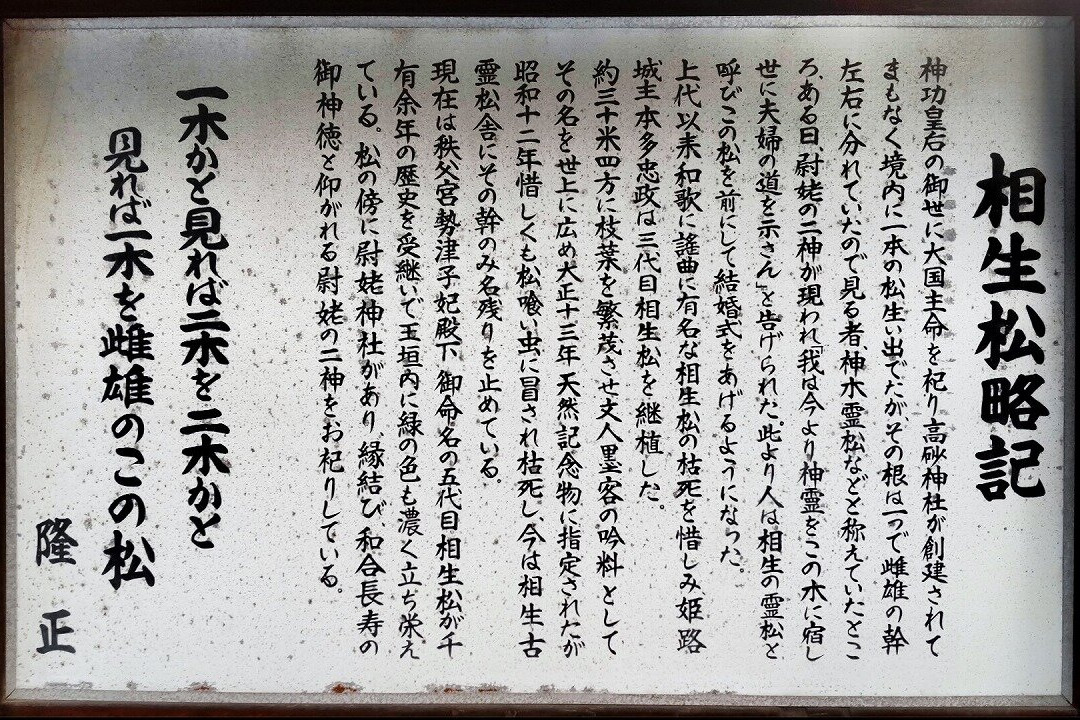 相生松略記
神功皇后の御世に大国主命を祀り高砂神社が創建されて
まもなく境内に一本の松生い出でたがその根は一つで雌雄の幹
左右に分れていたので見る者神木霊松などと称えていたとこ
ろ、ある日、尉姥の二神が現われ「我は今より神霊をこの木に宿し
世に夫婦の道を示さん」と告げられた。此より人は相生の霊松と
呼びこの松を前にして結婚式をあげるようになった。
上代以来和歌に謡曲に有名な相生松の枯死を惜しみ姫路
城主本多忠政は三代目相生松を継植した。
約三十米四方に枝葉を繁茂させ文人墨客の吟料として
その名を世上に広め大正十三年天然記念物に指定されたが
昭和十二年惜しくも松喰い虫に冒され枯死し、今は相生古
霊松舎にその幹のみ名残りを止めている。
現在は秩父宮勢津子妃殿下御命名の五代目相生松が千
有余年の歴史を受継いで玉垣内に緑の色も濃く立ち栄え
ている。松の傍に尉姥神社があり、縁結び、和合長寿の
御神徳と仰がれる尉姥の二神をお祀りしている。
一木かと見れば二木を二木かと
見れば一木を雌雄のこの松
隆正